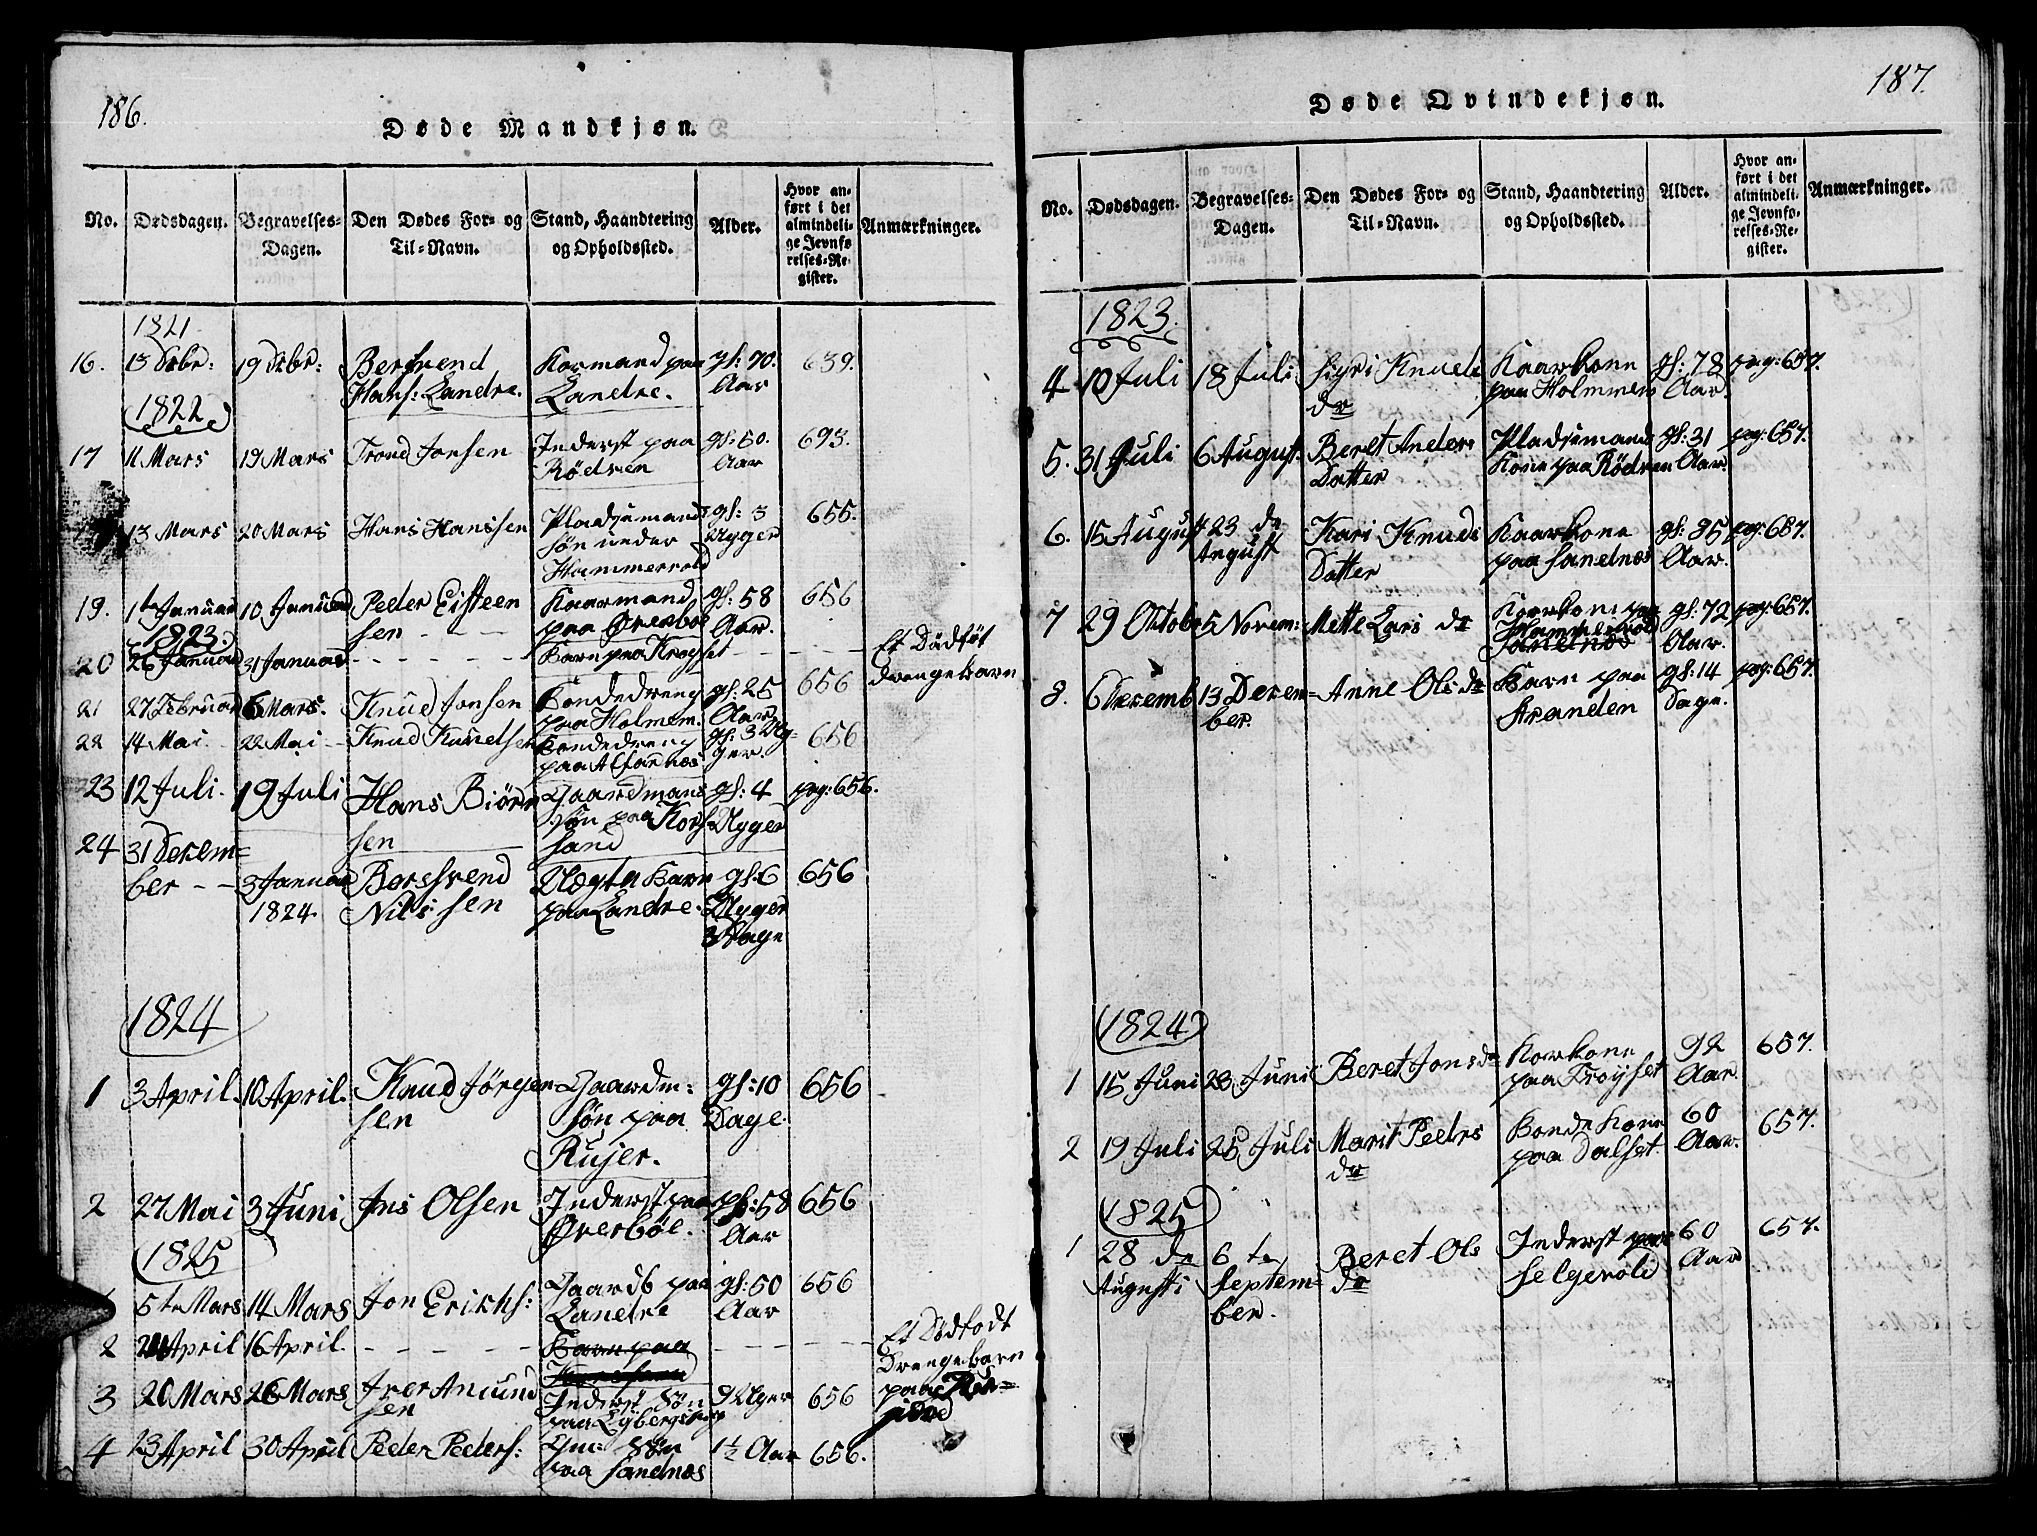 186.
Døde Mandkjøn.
No. Dødsdagen. Begravelses-Dagen. Den Dødes For- og Til-Navn. Stand, Haandtering og Opholdssted. Alder. Hvor anført i det almindelige Jevnførelses-Register. Anmærkninger.
1821
16. 13 Dcbr: 19 Dcbr: Kaarmand paa gl: 70. 639.
Hans: Landre. Landre. Aar
1822
17 11 Mars 19 Mars Trond Jonsen Inderst paa gl: 60. 693.
Rödsen Aar
13 Mars 20 Mars Hans Hanssen Pladsemands gl: 3 655.
Søn under Uger
19. 10 Januar Peder Eisteen Kaarmand gl: 58 656
sen - - - paa Øverböe Aar.
1823
20 26 Januar 31 Januar - - - - - Barn paa - - - Et Dödföt
Drengebarn
21 27 Februar 6 Mars. Knud Jonsen Bondedreng gl: 25 656
paa Holmem. Aar
22 14 Mai 22 Mai Knud Knudsen Bondedreng gl: 3 Uy- 656
paa Alfarnes ger.
23 12 Juli 19 Juli Hans Biörn Gaardmans gl: 4 pag: 656.
sen Søn paa Kors Uger
sand
24 31 Decem=
ber - - 3 Januar Beresvend Barn gl: 6 656
1824. Nilssen paa Landre. Uger
3 Dage
1824
1 3 April. 10 April. Knud Jörgen Gaardm: gl: 10 656
sen Søn paa Dage.
Rujer.
2 27 Mai 3 Juni Jns Olsen Inderst paa gl: 58 656
Øverböe. Aar
1825
5te Mars 14 Mars Jon Erichs: Gaardb paa gl: 50 656
Landre Aar
2 April 16 April. - - - - - Barn paa - - - - Et Dödfodt
Drengebarn
paa
3 20 Mars 26 Mars Iver Amund Inderst Søn 9 Uger 656
sen paa
4 23 April 30 April Peder Peders: Gm: Søn 1½ Aar 656.
paa Sandnes
187.
Døde Qvindekjøn.
No. Dødsdagen. Begravelses-Dagen. Den Dødes For- og Til-Navn. Stand, Haandtering og Opholdssted. Alder. Hvor anført i det almindelige Jevnførelses-Register. Anmærkninger.
1823.
4 10 Juli 18 Juli Sigri Knuds Kaarkone gl: 78 pag: 657.
dr paa Holmem Aar.
5. 31 Juli 6 August. Beret Anders Pladsemand gl: 31 pag: 657.
Datter Kone paa Rödsen Aar.
6. 15 August 23 de Kari Knuds Kaarkone gl: 85 pag: 657.
August Datter paa Sandnes Aar.
7 29 Oktober 5 Novem: Mette Lars dr Kaarkone paa gl: 72 pag: 657.
Aar.
8. 6 Decemb 13 Decem= Anne Ols dr Barn paa gl: 14 pag: 657.
ber. Stranden Dage.
1824
1 15 Juni 23 Juni Beret Jonsdr Kaarkone 92 657.
paa Aar.
2 19 Juli 25 Juli Marit Peders Bonde Kone 60 657.
dr paa Dalset. Aar.
1825
1 28 de 6 te Beret Ols Inderst paa 60 657.
Augusti Septem= dr Selgeröld Aar
ber.